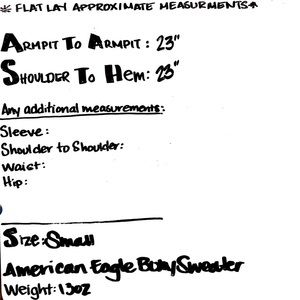 * FLAT LAY APPROXIMATE MEASURMENTS*
ARMPIT TO ARMPIT: 23"
SHOULDER TO HEM: 23"
Any additional measurements:
Sleeve:
Shoulder to Shoulder:
Waist:
Hip:
Size: Small
American Eagle Boxy Sweater
Weight: 13oz